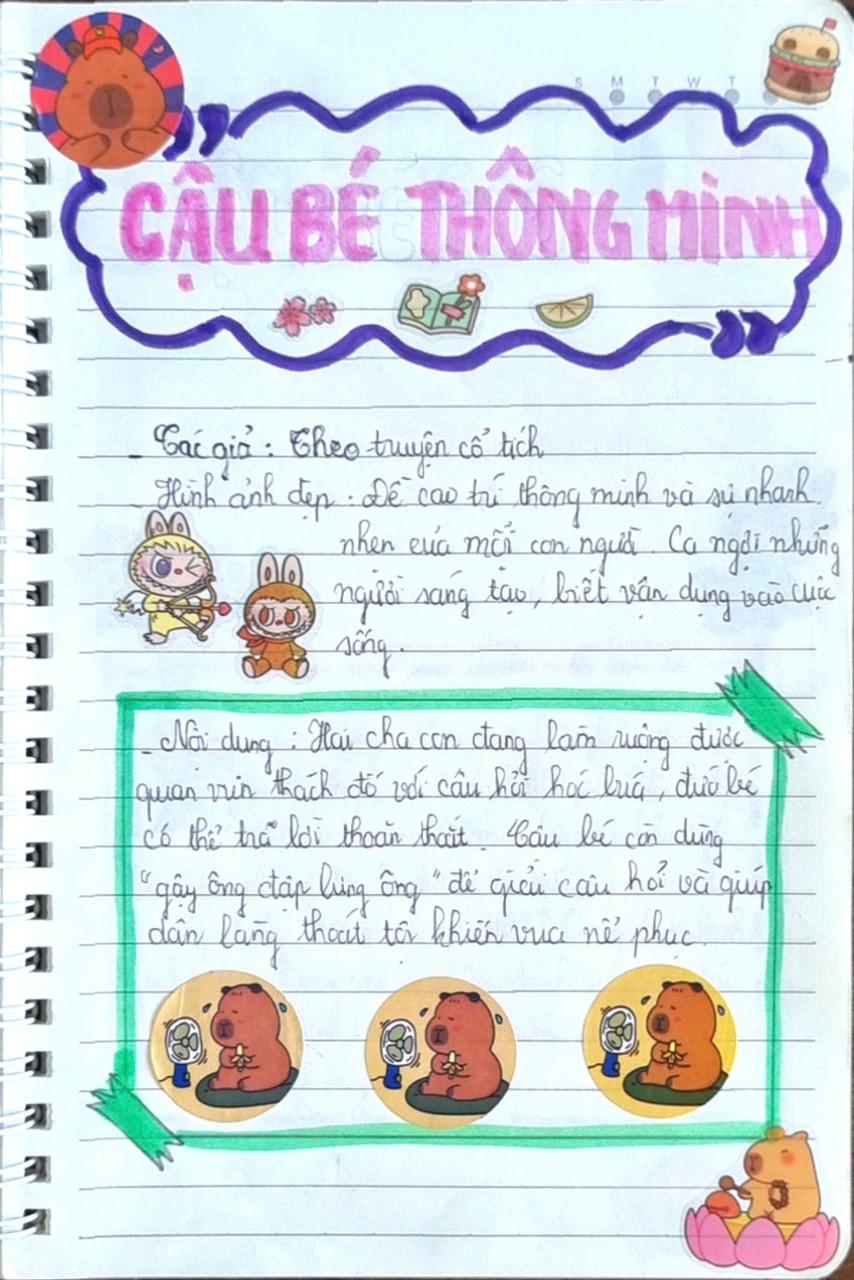 S M T W T
CẬU BÉ THÔNG MINH
- Tác giả : Theo truyện cổ tích
- Hình ảnh đẹp : Đề cao trí thông minh và sự nhanh
nhẹn của mỗi con người. Ca ngợi những
người sáng tạo, biết vận dụng vào cuộc
sống.
- Nội dung : Hai cha con đang làm ruộng được
quan vin thách đố với câu hỏi hóc búa, đứa bé
có thể trả lời thoăn thoắt. Cậu bé còn dùng
"gậy ông đập lưng ông" để giải câu hỏi và giúp
dân làng thoát tội khiến vua nể phục